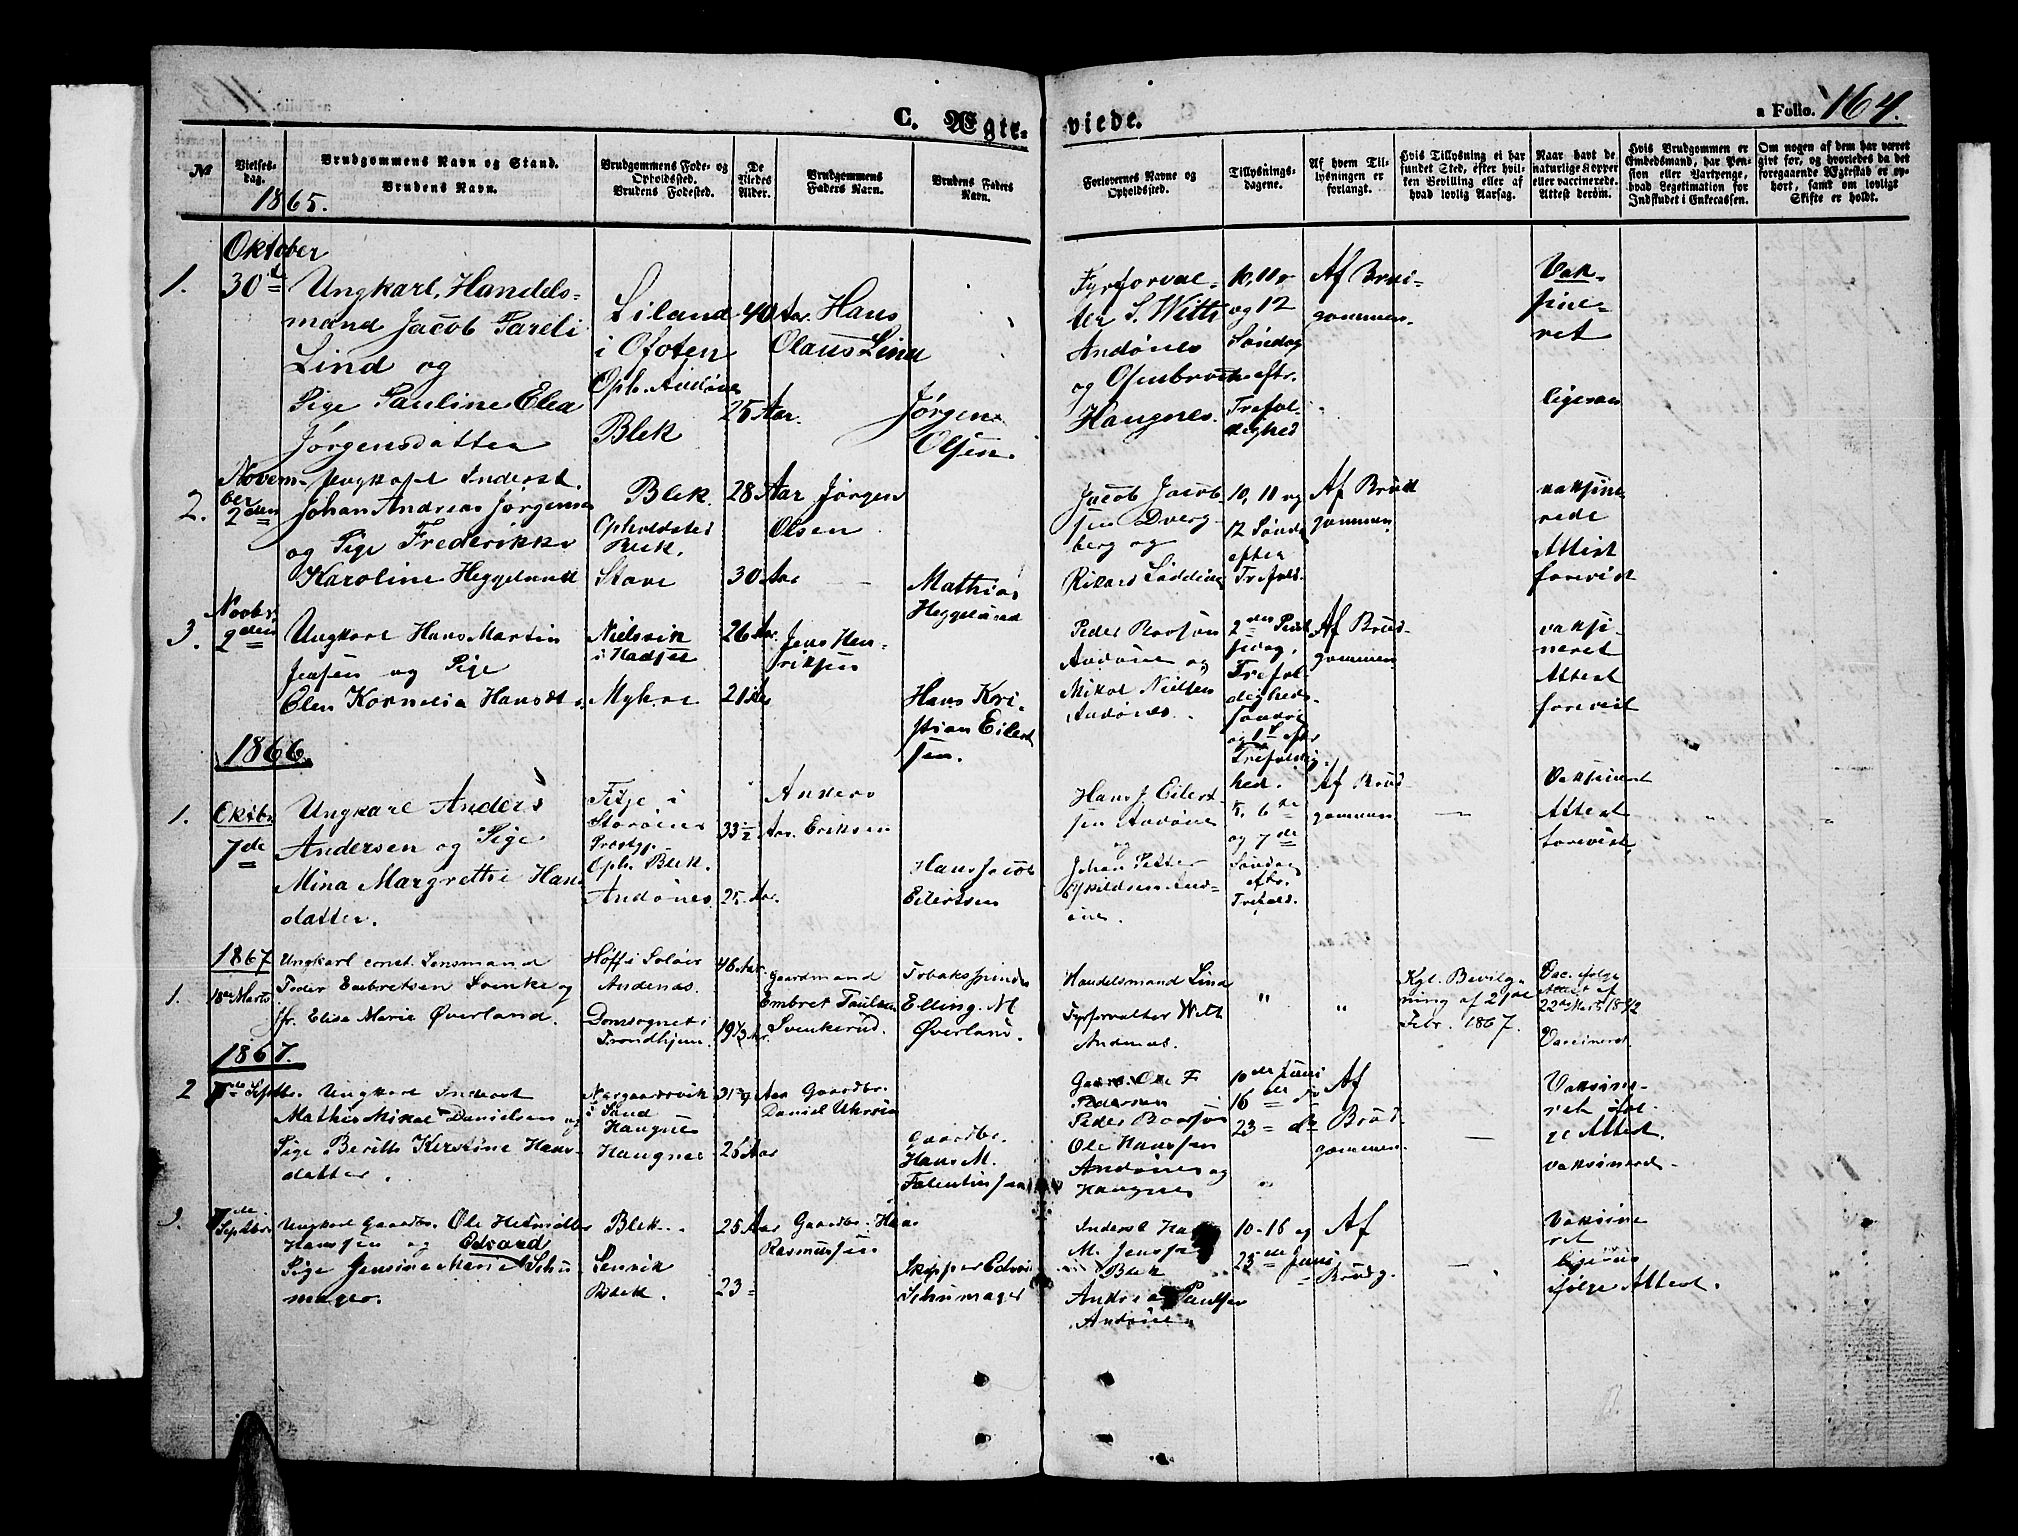 C. Ægte-
viede.
a Folio. 164.
№
Vielses-
dag.
Brudgommens Navn og Stand.
Brudens Navn.
Brudgommens Føde- og
Opholdssted.
Brudens Fødested.
De
Viedes
Alder.
Brudgommens
Faders Navn.
Brudens Faders
Navn.
Forlovernes Navne og
Opholdssted.
Tillysnings-
dagene.
Af hvem Til-
lysningen er
forlangt.
Hvis Tillysning ei har
fundet Sted, efter hvil-
ken Bevilling eller af
hvad lovlig Aarsag.
Naar havt de
naturlige Kopper
eller vaccinerede.
Attest derom.
Hvis Brudgommen er
Embedsmand, har Pen-
sion eller Vartpenge,
hvad Legitimation for
Indskudet i Enkecassen.
Om nogen af dem har været
gift før, og hvorledes da det
foregaaende Ægteskab er op-
hørt, samt om lovligt
Skifte er holdt.
1865.
Oktober
1.
30te
Ungkarl, Handels-
mand Jacob Pareli
Lind og
Pige Pauline Elea
Jørgensdatter
Liland
i Ofoten
Oph. Andønes
Blek
40 Aar.
25 Aar.
Hans
Olaus Lind
Jørgen
Olsen.
Fyrforval-
ter S. Witth
Andønes
og
Haugnes.
10, 11
og 12
Søndag
eftr.
Trefol-
dighed
Af Brud-
gommen.
Vak-
sine-
ret
ligesaa
2.
Novem-
ber
2den
Ungkarl Inderst
Johan Andreas Jørgensen
og Pige Frederikke
Karoline Heggelund
Blek
Opholdsted
Blek.
Stave
28 Aar
30 Aar
Jørgen
Olsen
Mathias
Heggelund
Jacob Jacob-
sen Dverg-
berg og
Rikard
10, 11 og
12 Sønda
efter
Trefold.
Af Brud
gommen.
vaksine-
rede
Attest
forevist
3.
Novbr.
9den
Ungkarl Hans Martin
Jensen og Pige
Elen Kornelia Hansdt.
Nielsvik
i Hadsel
Myhre
26 Aar.
21 Aar
Jens Hen-
riksen
Hans Kri-
stian Eilert
sen.
Peder
Andøne og
Mikal Nielsen
Andønes.
2den
Trefol-
digheds
søndag
og 1ste eftr
Trefoldig-
hed.
Af Brud-
gommen
vaksi-
neret
Attest
forevist
1866.
1.
Oktbr.
7de
Ungkarl Anders
Andersen og Pige
Mina Margrethe Hans
datter.
Fitje i
Storøens
Prostgj.
Oph. Blek.
Andønes
33½ Aar.
25 Aar.
Anders
Eriksen
Hans Jacob
Eilertsen
Hans J. Eilert-
sen Andøne
og
Johan Petter
Eskildsen And-
øne.
5, 6te
og 7de
Søndag
eftr.
Trefold.
Af Brud
gommen
Vaksineret
Attest
forevist.
1867
1.
18de Marts
Ungkarl const. Lensmand
Peder Embretsen Svenke og
Jfr. Elise Marie Øverland.
Hoff i Soløer
Andenæs.
Domsognet i
Trondhjem
46 Aar.
19½ Aar.
Gaardmand
Embret Paulsen
Svenkerud.
Tobakspinder
Elling M
Øverland.
Handelsmand Lind
Fyrforvalter Witth
Andenæs.
"
"
Kgl. Bevilg-
ning af 2den
Febr. 1867.
Vac. ifølge
Attest af
22de Marts 1842
Vaccineret
1867.
2
Septbr.
Ungkarl Inderst
Mathis Mikal Danielsen og
Pige Berith Kirstine Hans-
datter.
Norgaardsvik
i Sand
Haugnes
Haugnes
26 Aar
Gaardbr.
Daniel
Gaardbr.
Hans M.
Falentinsen
Gaardb. Ole F
Pedersen
Peder
Ole Hanssen
Andønes og
Haugnes
10de Juni
16de
23 - do
Af
Brud-
gommen.
Vaksine-
ret iføl-
ge Attest.
vaksinerede
3.
Septbr
Ungkarl Gaardbr. Ole
Hanssen og Edvard
Pige Jensine Marie Schu
mager.
Blek.
Senvik
Blek.
25 Aar
23 -
Gaardbr. Hans
Rasmussen
Skipper Edvard
Schumager
Inderst
M. Jenssen
Blek
Andreas Paulsen
Andøne
10- 16 og
23de Juni
Af
Brudg.
Vaksine
ret
ligesaa
følge Attest.